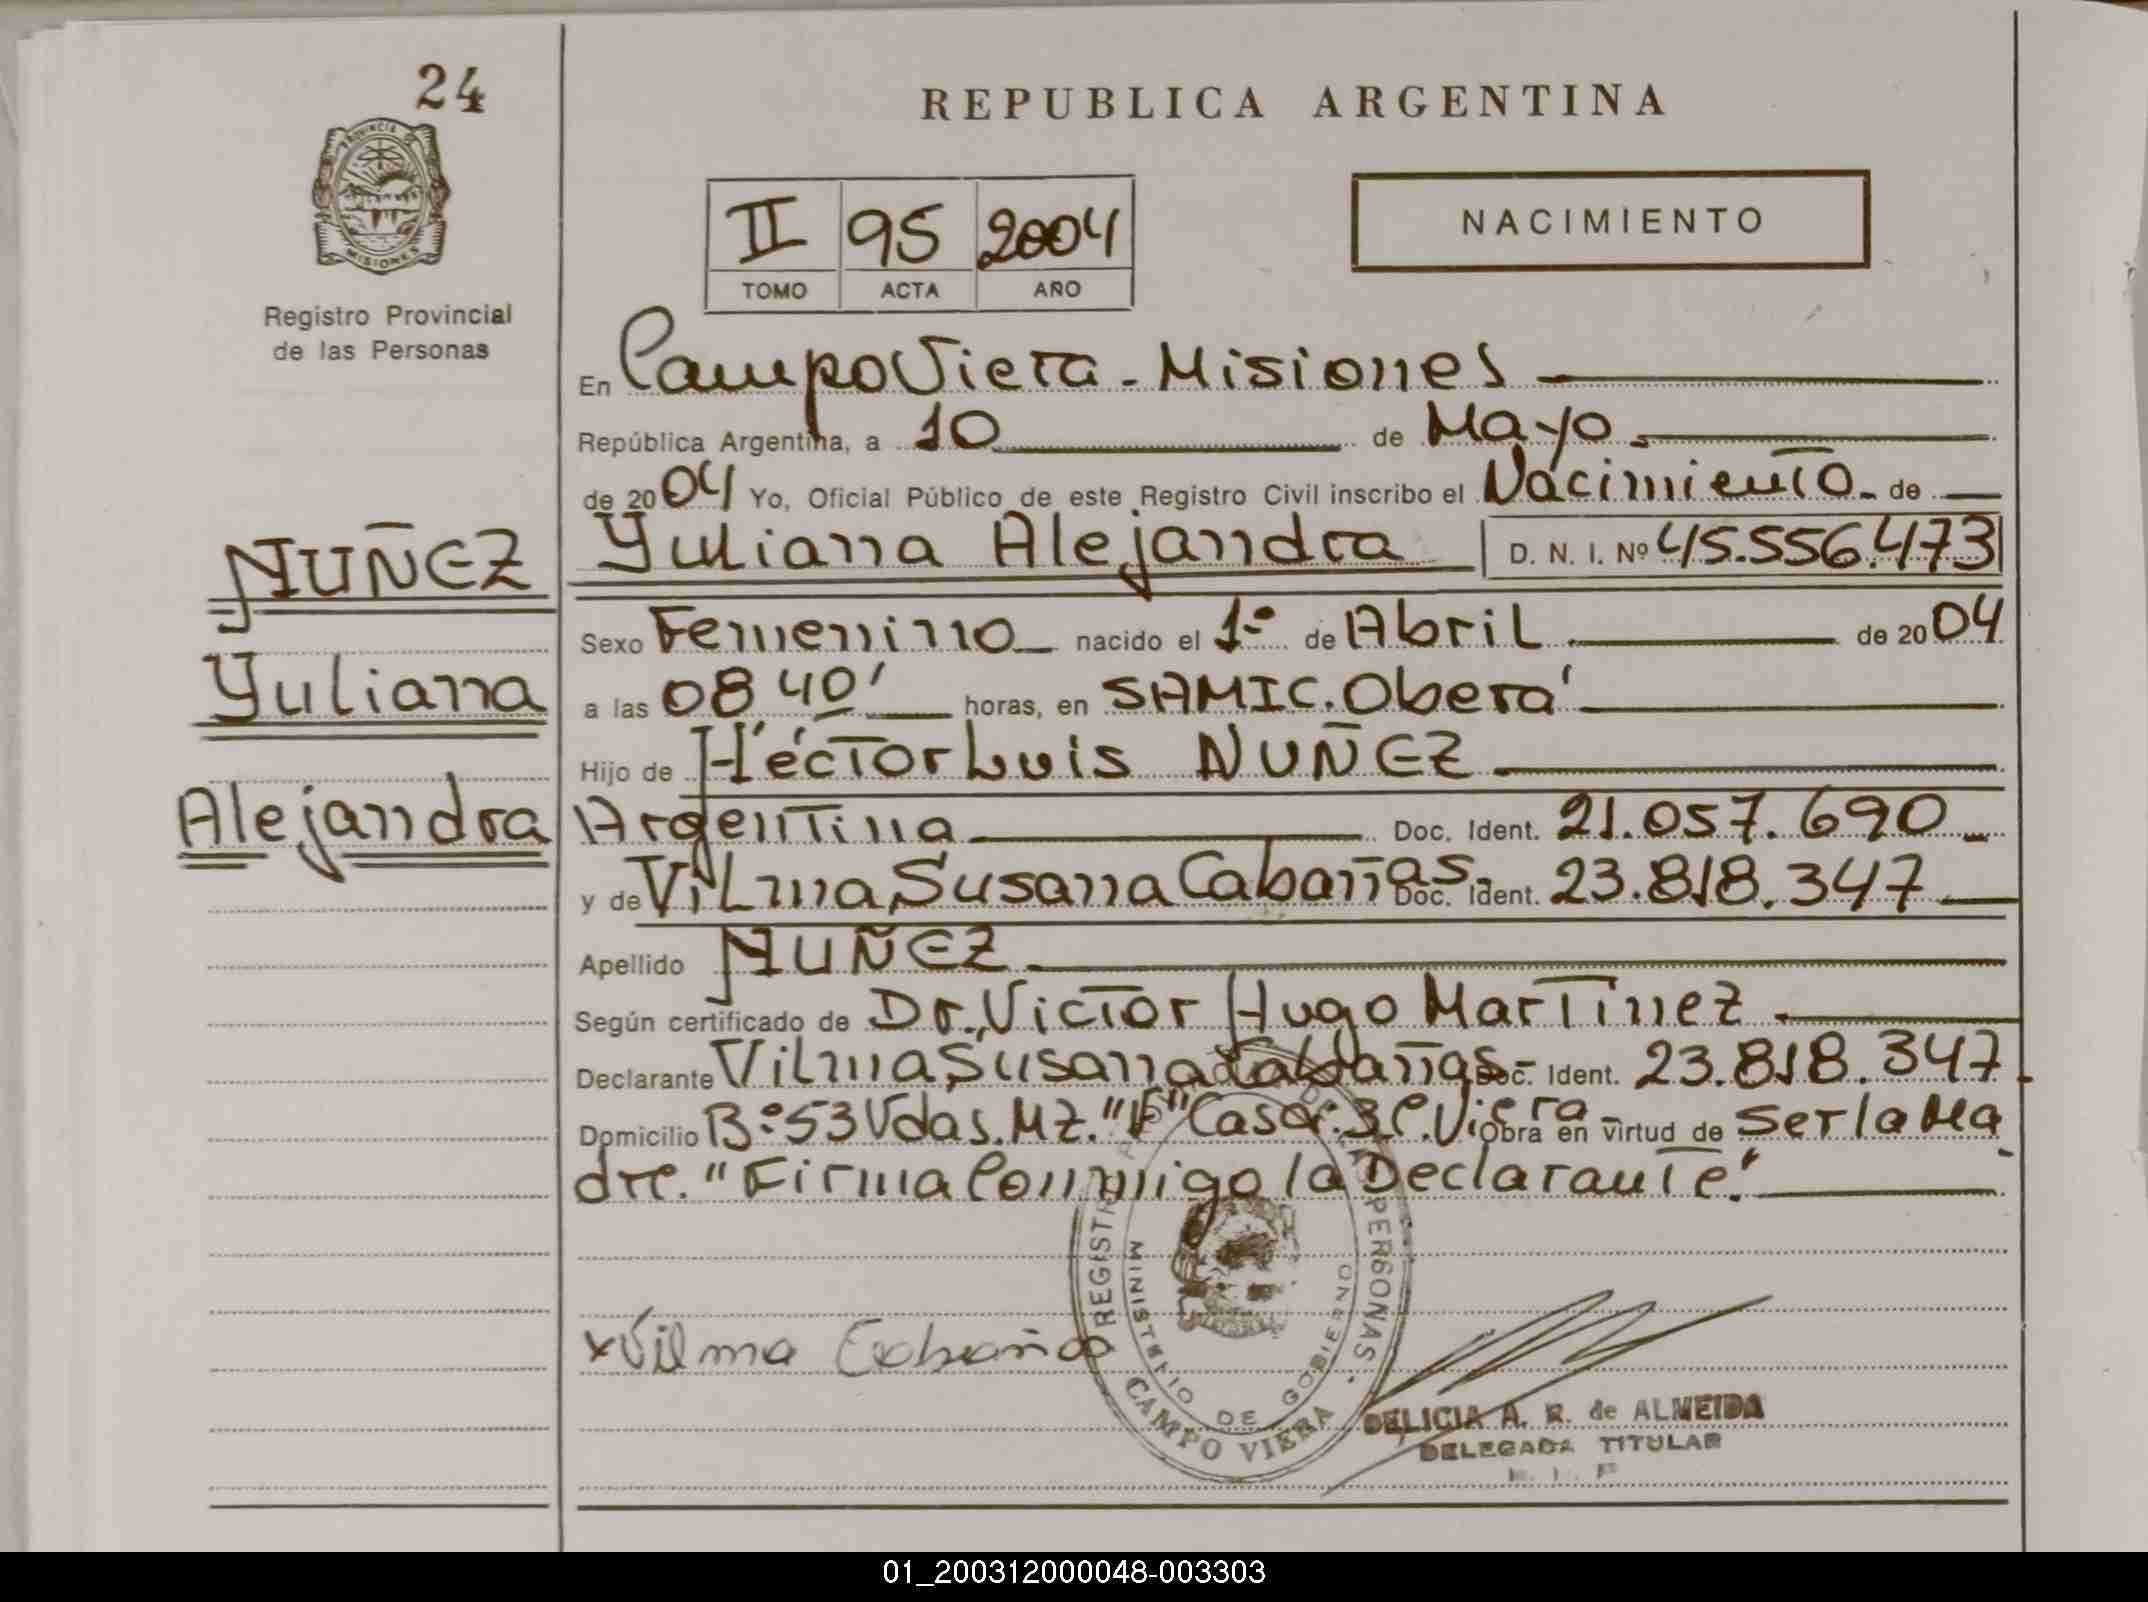 24
REPUBLICA ARGENTINA
PROVINCIA DE
MISIONES
Registro Provincial
de las Personas
NUÑEZ
Yuliana
Alejandra
II 95 2004
TOMO ACTA AÑO
NACIMIENTO
En Campo Viera - Misiones
República Argentina, a 10 de Mayo.
de 2004 Yo, Oficial Público de este Registro Civil inscribo el Nacimiento. de
Yuliana Alejandra D. N. I. Nº 45.556.473
Sexo Femenino nacido el 1º de Abril de 2004
a las 08 40' horas, en SAMIC. Oberá
Hijo de Héctor Luis NUÑEZ
Argentina Doc. Ident. 21.057.690
y de Vilma Susana Cabañas Doc. Ident. 23.818.347
Apellido NUÑEZ
Según certificado de Dr. Victor Hugo Martinez.
Declarante Vilma Susana Cabañas Doc. Ident. 23.818.347
Domicilio Bº 53 Vdas. Mz. "F" Casa: 3 C. Viera obra en virtud de ser la Ma
dre. "Firma Conmigo la Declarante".
REGISTRO DE PERSONAS
MINISTERIO DE GOBIERNO
CAMPO VIERA
x Vilma Cabañas
DELICIA A. R. de ALMEIDA
DELEGADA TITULAR
01_200312000048-003303